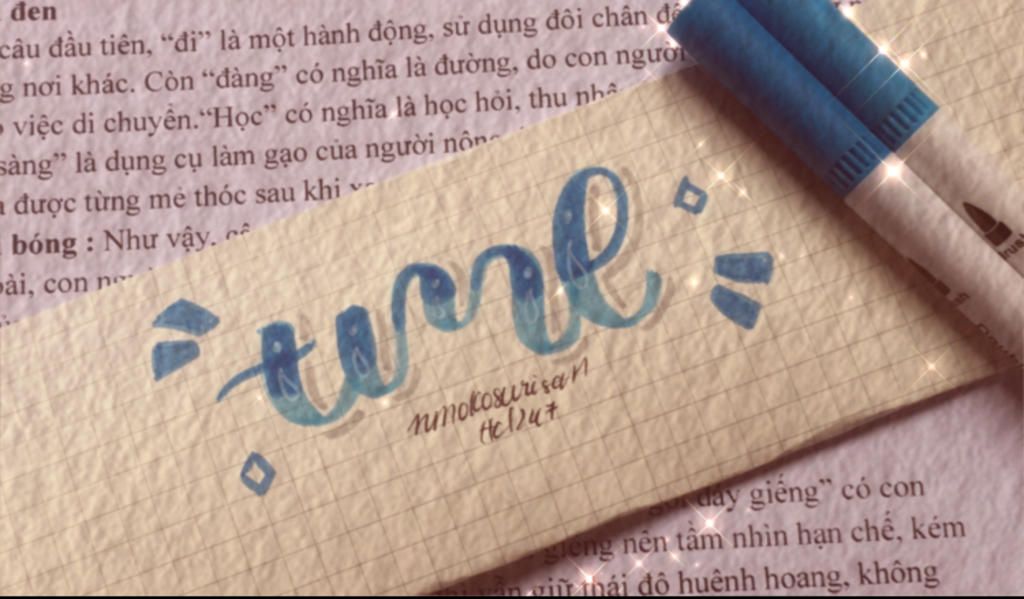 đen
câu đầu tiên, “đi” là một hành động, sử dụng đôi chân để
nơi khác. Còn “đàng” có nghĩa là đường, do con người
việc di chuyển.“Học” có nghĩa là học hỏi, thu
sàng” là dụng cụ làm gạo của người
được từng mẻ thóc sau khi
bóng : Như vậy,
con
time
đáy giếng” có con
giếng nên tầm nhìn hạn chế, kém
giữ thái độ huênh hoang, không